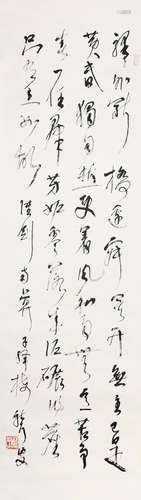 驛外斷橋邊寂寞開無主已是
黃昏獨自愁更著風和雨無意苦爭
春一任群芳妒零落成泥碾作塵
只有香如故 陸劍南卜算子詠梅